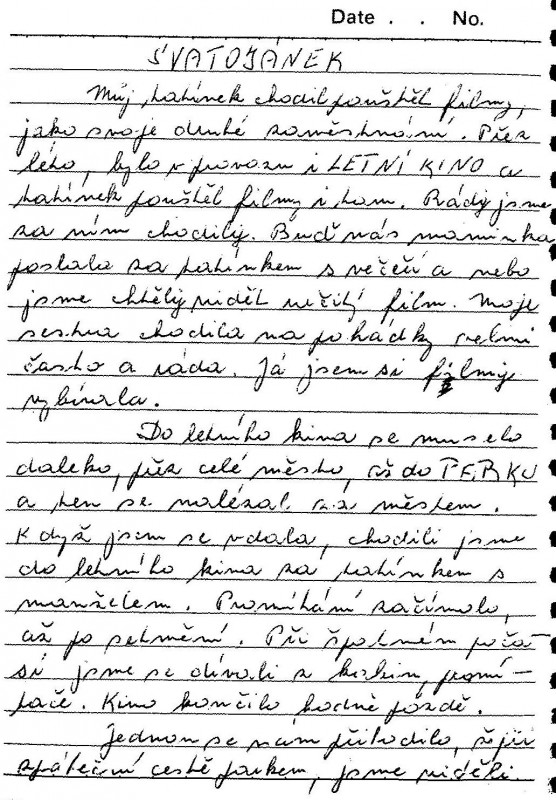 Date . . No.
SVATOJÁNEK
Můj, tatínek chodil pouštět filmy,
jako svoje druhé zaměstnání. Přez
léto, bylo v provozu i LETNÍ KINO a
tatínek pouštěl filmy i tam. Rády jsme
za ním chodily. Buď nás maminka
poslala za tatínkem s večeří a nebo
jsme chtěly vidět určitý film. Moje
sestra chodila na pohádky velmi
často a ráda. Já jsem si filmy
vybírala.
Do letního kina se muselo
daleko, přez celé město, až do PERKU
a ten se nalézal za městem.
Když jsem se vdala, chodili jsme
do letního kina za tatínkem s
manželem. Promítání začínalo,
až po setmění. Při špatném poča-
sí jsme se dívali z kabiny, promí-
tače. Kino končilo hodně pozdě.
Jednou se nám přihodilo, že při
zpáteční cestě parkem, jsme viděli.